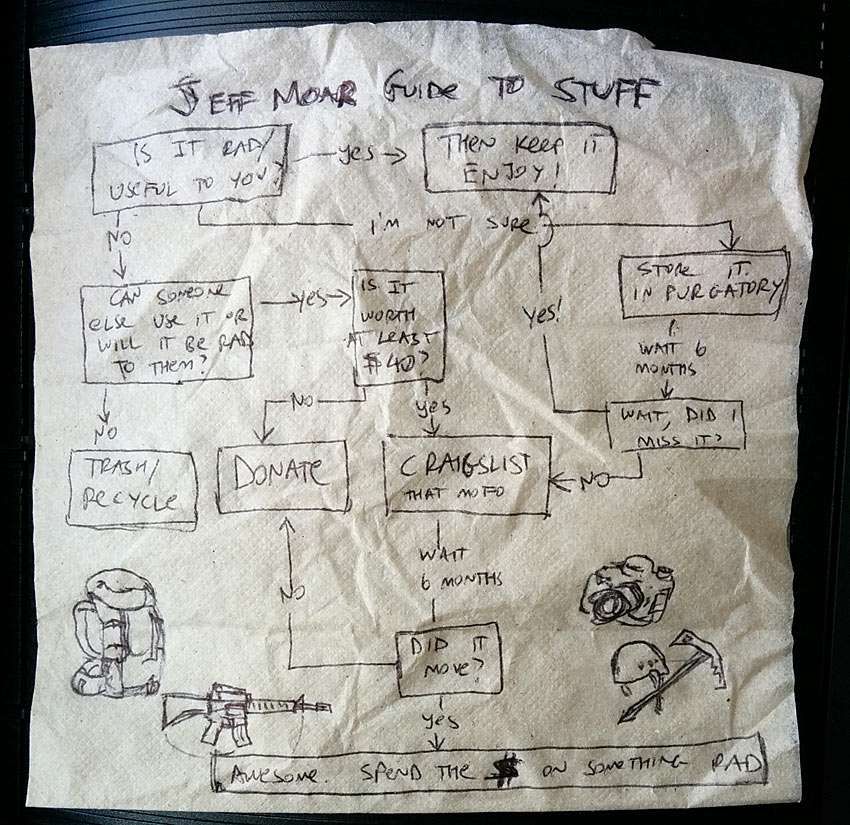 JEFF MOAR GUIDE TO STUFF
IS IT RAD/
USEFUL TO YOU?
YES
THEN KEEP IT
ENJOY!
I'M NOT SURE
NO
STORE IT
IN PURGATORY
CAN SOMEONE
ELSE USE IT OR
WILL IT BE RAD
TO THEM?
YES
IS IT
WORTH
AT LEAST
$40?
YES!
WAIT 6
MONTHS
NO
YES
WAIT, DID I
MISS IT?
NO
TRASH/
RECYCLE
DONATE
CRAIGSLIST
THAT MOFO
NO
WAIT
6 MONTHS
NO
DID IT
MOVE?
YES
AWESOME. SPEND THE $ ON SOMETHING RAD